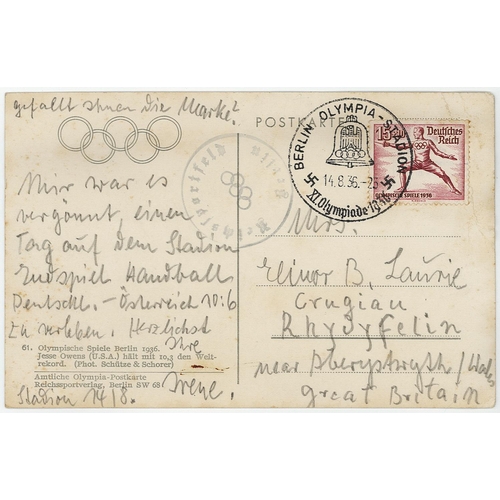 gefällt Ihnen die Marke?
Mir war es
vergönnt, einen
Tag auf dem Stadion
Endspiel Handball
Deutschl. - Österreich 10:6
zu verleben. Herzlichst
Ihre
Irene.
61. Olympische Spiele Berlin 1936.
Jesse Owens (U.S.A.) hält mit 10,3 den Welt-
rekord. (Phot. Schütze & Schorer)
Amtliche Olympia-Postkarte
Reichssportverlag, Berlin SW 68
Stadion 14/8.
POSTKARTE
Reichssportfeld
BERLIN OLYMPIA-STADION
14.8.36.
XI. Olympiade 1936
15+10
Deutsches
Reich
OLYMPISCHE SPIELE 1936
Mrs.
Elinor B. Laurie
Crugiau
Rhydyfelin
near Aberystwyth / Wales
Great Britain